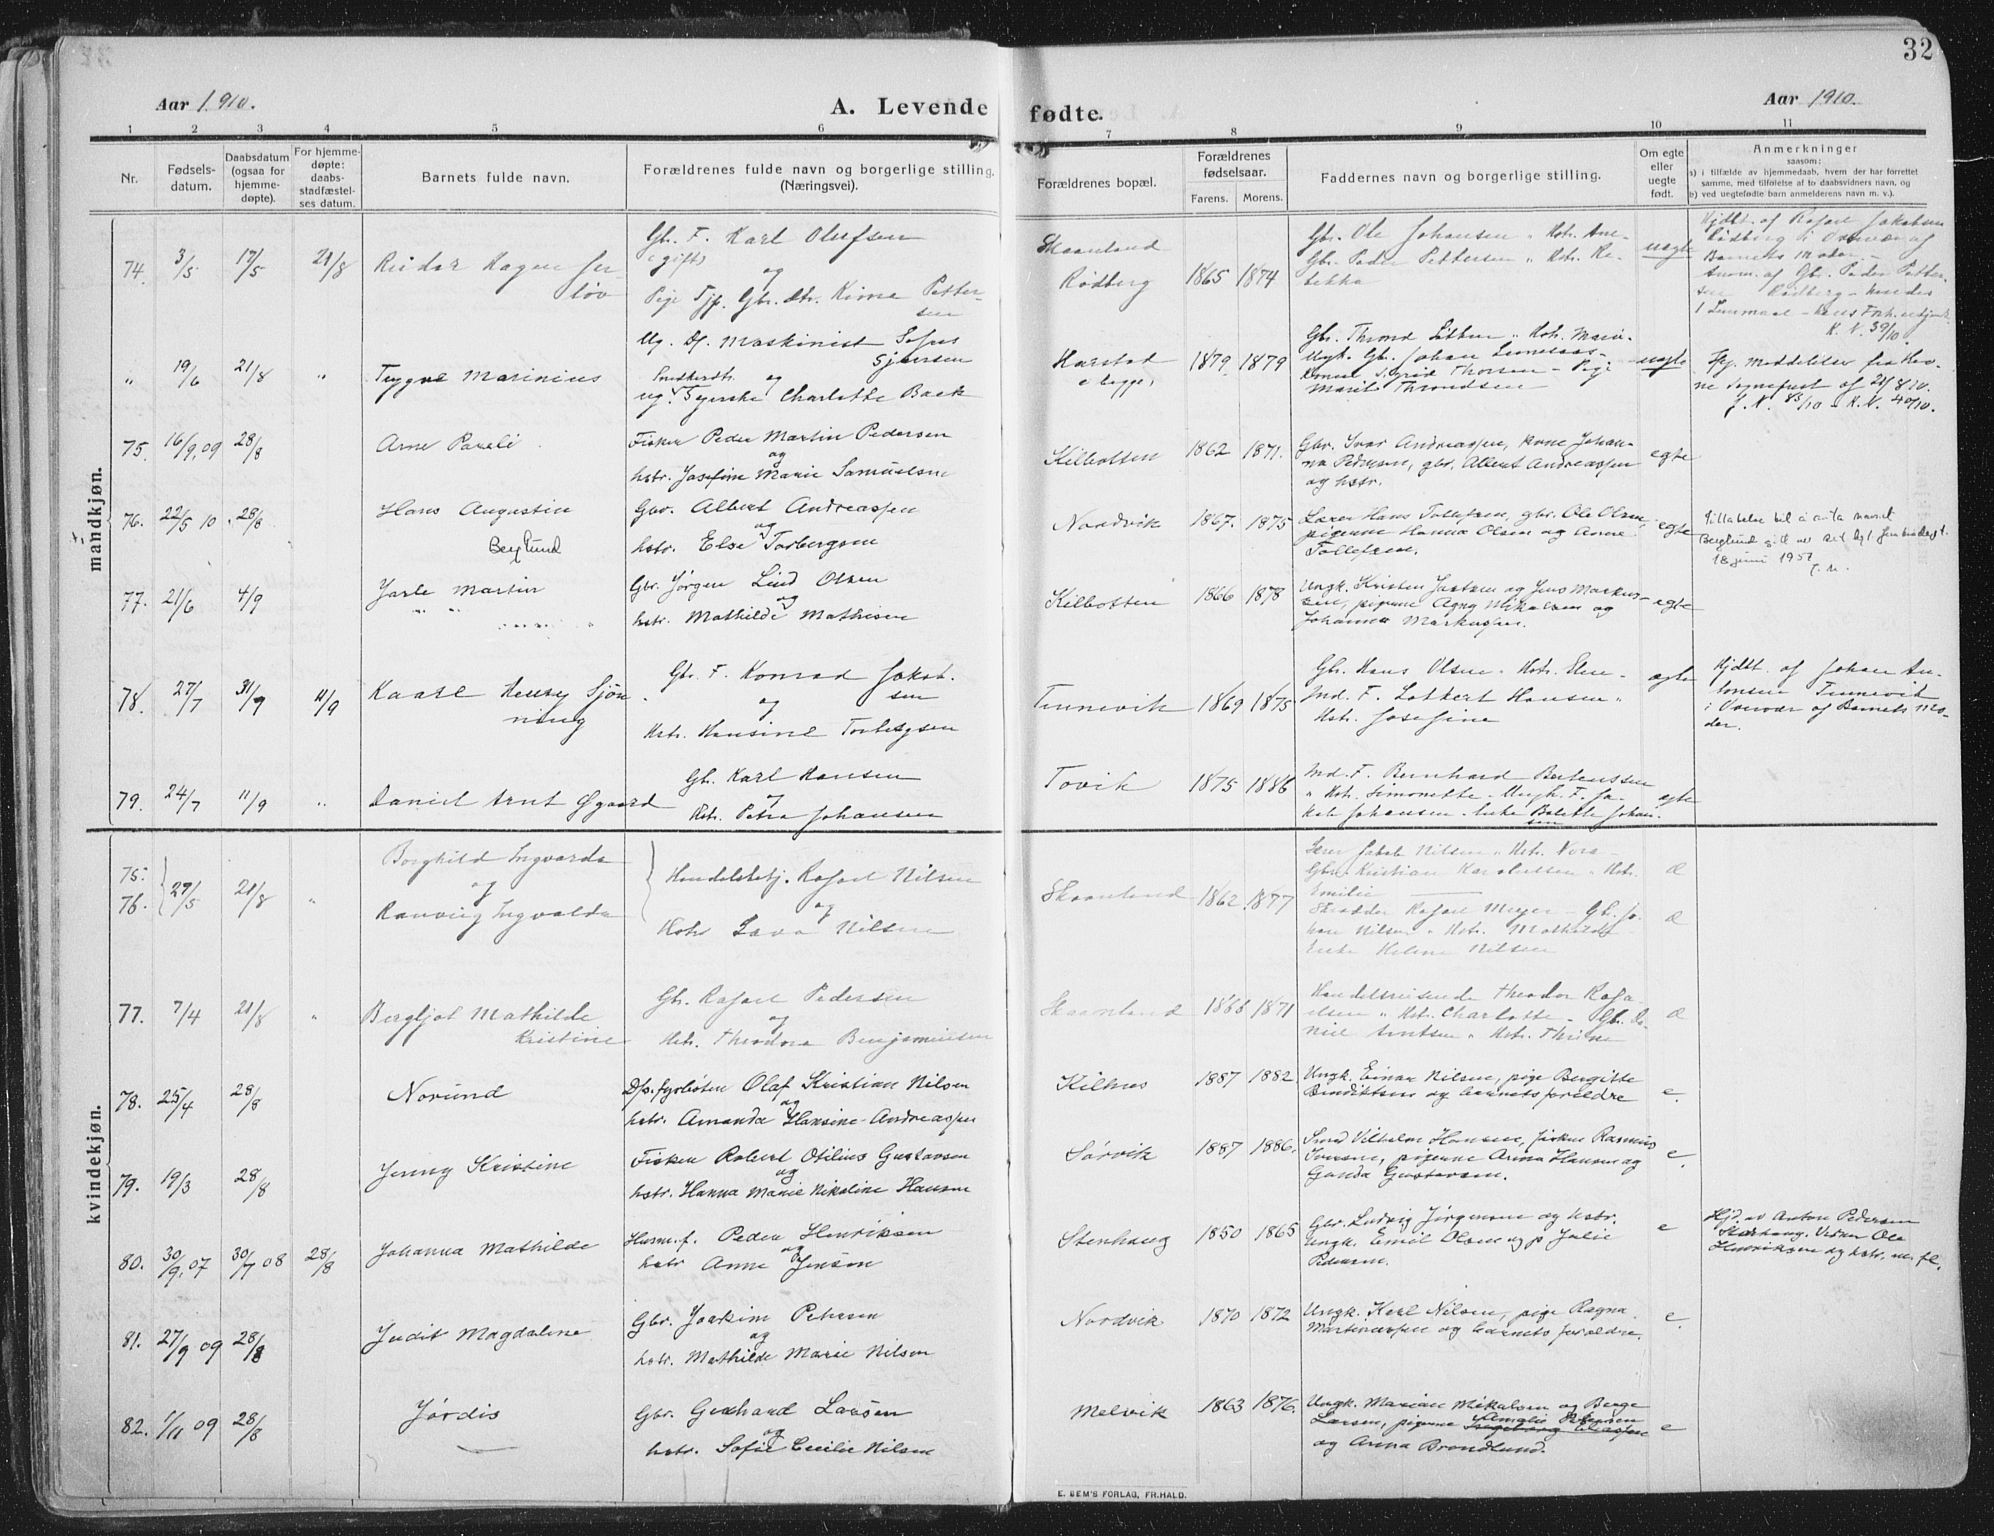 32
Aar 1910.
A. Levende fødte.
Aar 1910.
1 2 3 4 5 6 7 8 9 10 11
Nr.
Fødsels-
datum.
Daabsdatum
(ogsaa for
hjemme-
døpte).
For hjemme-
døpte:
daabs-
stadfæstel-
ses datum.
Barnets fulde navn.
Forældrenes fulde navn og borgerlige stilling.
(Næringsvei).
Forældrenes bopæl.
Forældrenes
fødselsaar.
Farens. Morens.
Faddernes navn og borgerlige stilling.
Om egte
eller
uegte
født.
Anmerkninger
saasom:
a) i tilfælde av hjemmedaab, hvem der har forrettet
samme, med tilføielse af to daabsvidners navn, og
b) ved uegtefødte barn anmelderens navn m. v.).
mandkjøn.
74. 3/5 17/5 21/8 Reidar Hagen
Gbr. F. Karl Olufsen
(gift)
og
Pige Tjp. Gbr. dtr. Petter-
sen
Skaanland
Rødberg
1865 1874
Gbr. Ole Johansen " Hstr. Ane-
Gbr. Peder Pettersen " Hstr. Re-
bekka
uegte
Hjdbt. af Rafael Jakobsen
Rødberg i Overvær af
Barnets Moder.-
Anm. af Gbr. Peder Petter-
sen Rødberg
K. N. 39/10.
" 19/6 21/8 " Trygve Marinius
Ug. Df. Maskinist Sofus
Sjursen
Snedkerdtr. og
ug. Syerske Charlotte Back
Harstad
1879. 1879
Gbr. Thrond " Hstr. Marie-
Ungk. Gbr. Johan
Sigrid Thorsen - Pige
Marit Throndsen
uegte
meddelelse fra
K. N. 40/10.
75. 16/9.09 28/8 Arne Pareli
Fisker Peder Martin Pedersen
og
hstr. Josefine Marie Samuelsen
Kilbotten
1862 1871.
Gbr. Ivar Andreassen, kone Johan-
na Pedersen, gbr. Albert Andreassen
og hstr.
egte
76. 22/5 10. 28/8 Hans Augustin
Berglund
Gbr. Albert Andreassen
og
hstr. Else Torbergsen
Nordvik
1867. 1875
Lærer Hans Tollefsen, gbr. Ole Olsen,
pigerne Hanna Olsen og Anne
Tollefsen.
egte
Tillatelse til å anta navnet
Berglund gitt av
18 juni 1951
77. 21/6 4/9 Jarle Martin
Gbr. Jørgen Lind Olsen
og
hstr. Mathilde Mathisen
Kilbotten
1866 1878
Ungk. Kristen og Jens Markus-
sen, pigerne Agny Mikalsen og
Johanna Markussen.
egte
78. 27/7 31/7 11/9 Kaare Henry Sjøn-
ning
Gbr. F. Konrad Jakob-
sen
og
Hstr. Hansine Torbergsen
Tennevik
1869 1875
Gbr. Hans Olsen - Hstr. Elen-
Ind. F. Lokkert Hansen "
Hstr. Josefine
egte
Hjdbt. af Johan An-
tonsen Tennevik
i Overvær af Barnets Mo-
der.
79. 24/7 11/9 " Daniel Arnt Øgaard
Gbr. Karl Hansen
og
Hstr. Petra Johansen
Tovik
1875 1886
Ind. F. Bernhard Bertenssen
" Hstr. Simonette - Ungk. F. Ja-
kob Johansen. Enke Bolette Johan-
sen
egte
kvindekjøn.
75. 76. 29/5 21/8 "
Borghild Ingvarda
og
Ranveig Ingvalda
Handelsbetj. Rafael Nilsen
og
Hstr. Lava Nilsen
Skaanland
1862. 1877
Lærer Jakob Nilsen " Hstr. Nora-
Gbr. Kristian Karoliussen " Hstr.
Emilie
Skrædder Rafael Meyer - Gbr. Jo-
han Nilsen " Hstr. Mathilde
Enke Helene Nilsen
77. 7/4 21/8 " Bergljot Mathilde
Kristine
Gbr. Rafael Pedersen
og
Hstr. Theodora Benjaminsen
Skaanland
1868 1871
Handelsreisende Theodor Rafa-
elsen " Hstr. Charlotte - Gbr. Da-
niel Arntsen " Hstr. Thrine
78. 25/4 28/8 Norund
Dps. fyrbøter Olaf Kristian Nilsen
og
hstr. Amanda Hansine Andreassen
Kilnes
1887 1882.
Ungk. Einar Nilsen, pige Bergitte
Bendiktsen og barnets forældre
e.
79. 19/3 28/8 Jenny Kristine
Fisker Robert Otilius Gustavsen
og
hstr. Hanna Marie Nikoline Hansen
Sørvik
1887 1886.
Smed Vilhelm Hansen, fisker Rasmus
Iversen, pigerne Anna Hansen og
Ganda Gustavsen.
e.
80. 30/9.07 30/7 08 28/8 Johanna Mathilde
Husm. f. Peder Henriksen
og
hstr Anne Jenson
Stenhaug
1850 1865
Gbr. Ludvig Jørgensen og hstr.
Ungk. Emil Olsen og p. Julie
Pedersen.
e
Hjd. av Anton Pedersen
Stenhaug. Vidner Ole
Henriksen og hstr. m. fl.
81. 27/9 09 28/8 Judit Magdalene
Gbr. Joakim Petersen
og
hstr. Mathilde Marie Nilsen
Nordvik
1870 1872
Ungk. Karl Nilsen, pige Ragna
Martinussen og barnets forældre.
e.
82. 1/11 09 28/8 Jørdis
Gbr. Gerhard Larsen
og
hstr. Sofie Cecilie Nilsen
Melvik
1863 1876.
Ungk. Marian Mikalsen og Berge
Larsen, pigerne Amalie Petersen
og Anna Brondlund.
e
E. SEM'S FORLAG, FR.HALD.